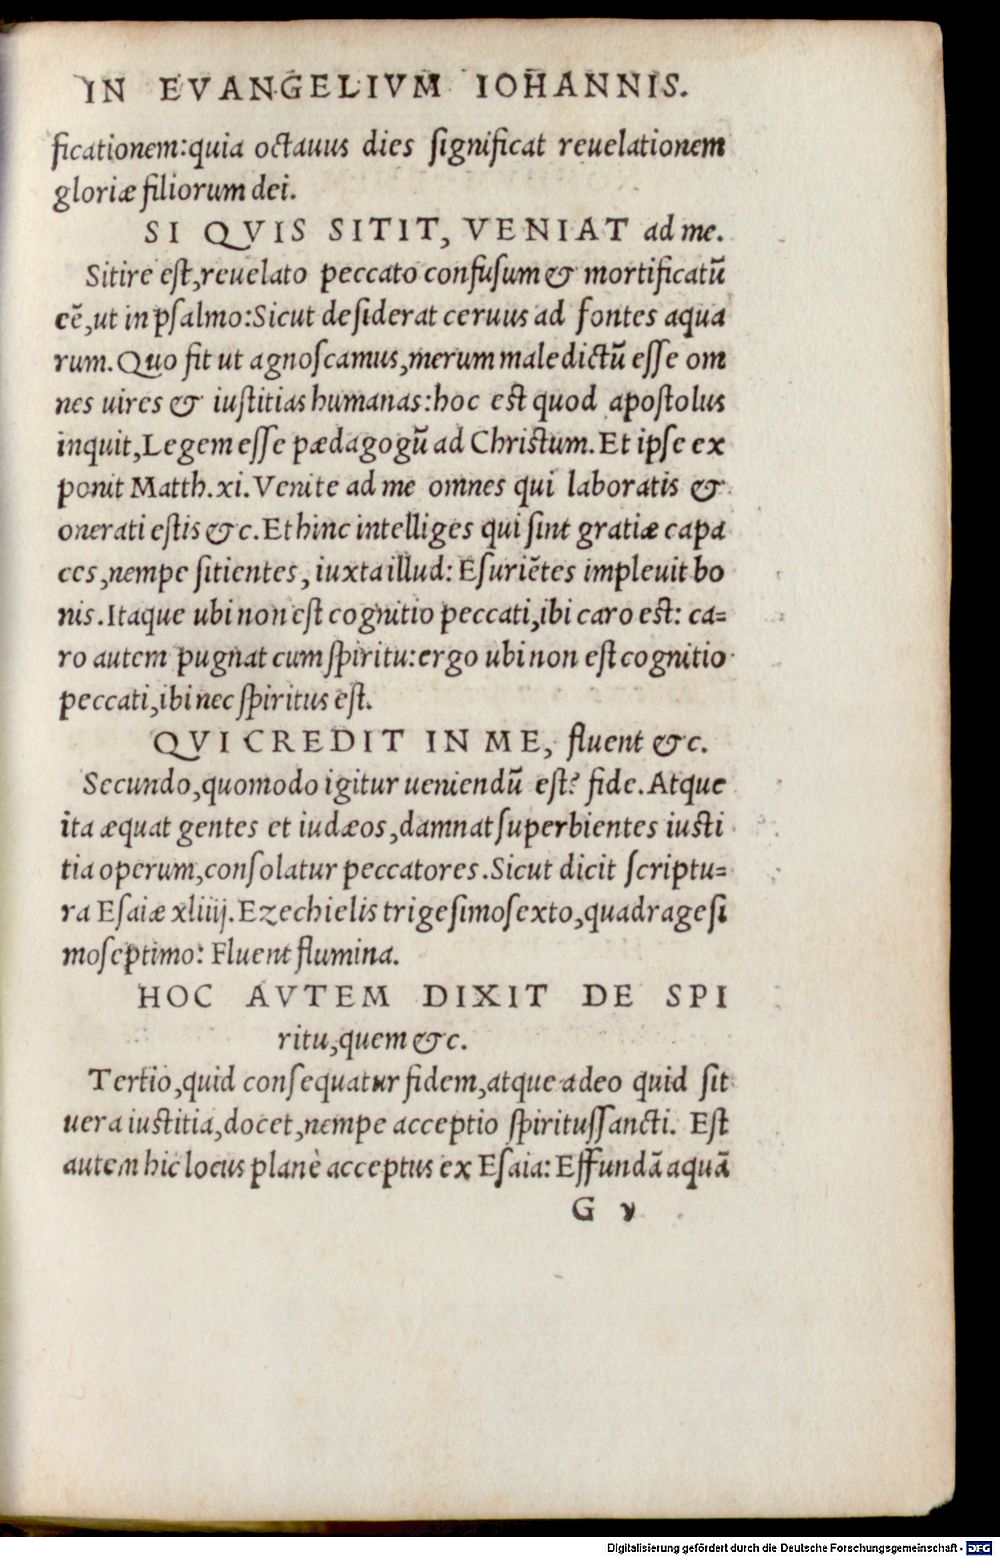 IN EVANGELIVM IOHANNIS.
ficationem:quia octauus dies ſignificat reuelationem
gloriæ filiorum dei.
SI QVIS SITIT, VENIAT ad me.
Sitire eſt,reuelato peccato confuſum & mortificatū
eē,ut in pſalmo:Sicut deſiderat ceruus ad fontes aqua
rum. Quo fit ut agnoſcamus,merum maledictū eſſe om
nes uires & iuſtitias humanas:hoc eſt quod apoſtolus
inquit,Legem eſſe pædagogū ad Chriſtum. Et ipſe ex
ponit Matth.xi. Venite ad me omnes qui laboratis &
onerati eſtis &c. Et hinc intelliges qui ſint gratiæ capa
ces,nempe ſitientes, iuxta illud: Eſuriētes impleuit bo
nis. Itaque ubi non eſt cognitio peccati,ibi caro eſt: ca=
ro autem pugnat cum ſpiritu:ergo ubi non eſt cognitio
peccati,ibi nec ſpiritus eſt.
QVI CREDIT IN ME, fluent &c.
Secundo,quomodo igitur ueniendū eſt? fide. Atque
ita æquat gentes et iudæos,damnat ſuperbientes iuſti
tia operum,conſolatur peccatores. Sicut dicit ſcriptu=
ra Eſaiæ xliiij. Ezechielis trigeſimoſexto,quadrageſi
moſeptimo: Fluent flumina.
HOC AVTEM DIXIT DE SPI
ritu,quem &c.
Tertio,quid conſequatur fidem,atque adeo quid ſit
uera iuſtitia,docet,nempe acceptio ſpirituſſancti. Eſt
autem hic locus planè acceptus ex Eſaia: Effundā aquā
G v
Digitalisierung gefördert durch die Deutsche Forschungsgemeinschaft - DFG